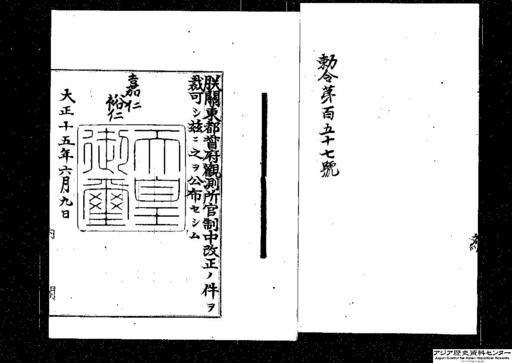 勅令第百五十七號
朕關東都督府觀測所官制中改正ノ件ヲ
裁可シ茲ニ之ヲ公布セシム
嘉仁
裕仁
天皇
御璽
大正十五年六月九日
内閣
アジア歴史資料センター
Japan Center for Asian Historical Records